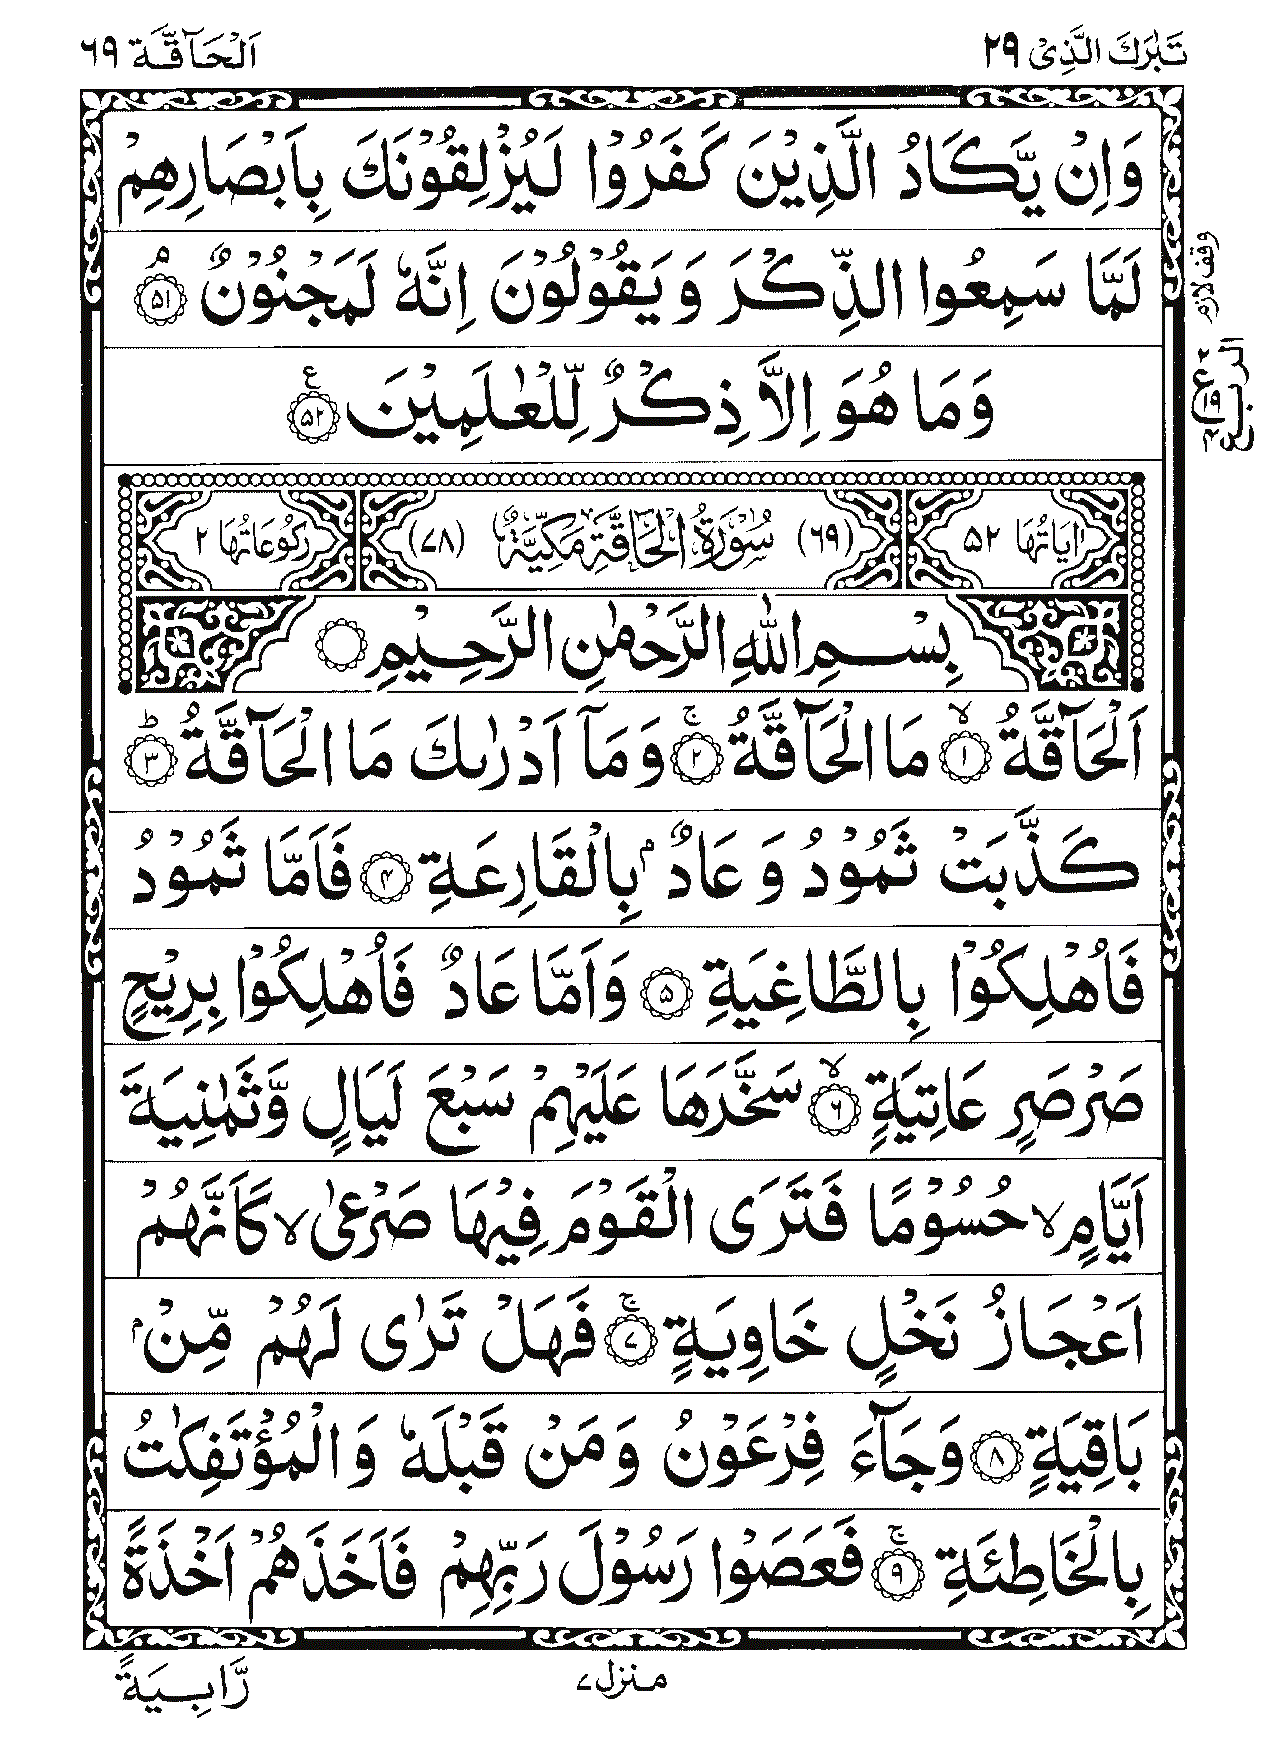 تَبٰرَكَ الَّذِیْ ۲۹
اَلْحَآقَّة ۶۹
وَاِنْ یَّكَادُ الَّذِیْنَ كَفَرُوْا لَیُزْلِقُوْنَكَ بِاَبْصَارِهِمْ
لَمَّا سَمِعُوا الذِّكْرَ وَیَقُوْلُوْنَ اِنَّهٗ لَمَجْنُوْنٌ ۘ ۵۱
وقف لازم
وَمَا هُوَ اِلَّا ذِكْرٌ لِّلْعٰلَمِیْنَ ۵۲ ع
الربع
۲ ع ۱۹ ۴
اٰیَاتُهَا ۵۲
(۶۹) سُوْرَةُ الْحَاقَّةِ مَكِّیَّةٌ (۷۸)
رُكُوْعَاتُهَا ۲
بِسْمِ اللّٰهِ الرَّحْمٰنِ الرَّحِیْمِ
اَلْحَآقَّةُ ۙ ۱ مَا الْحَآقَّةُ ۚ ۲ وَمَاۤ اَدْرٰىكَ مَا الْحَآقَّةُ ؕ ۳
كَذَّبَتْ ثَمُوْدُ وَعَادٌۢ بِالْقَارِعَةِ ۴ فَاَمَّا ثَمُوْدُ
فَاُهْلِكُوْا بِالطَّاغِیَةِ ۵ وَاَمَّا عَادٌ فَاُهْلِكُوْا بِرِیْحٍ
صَرْصَرٍ عَاتِیَةٍ ۙ ۶ سَخَّرَهَا عَلَیْهِمْ سَبْعَ لَیَالٍ وَّثَمٰنِیَةَ
اَیَّامٍ ۙ حُسُوْمًا فَتَرَى الْقَوْمَ فِیْهَا صَرْعٰى ۙ كَاَنَّهُمْ
اَعْجَازُ نَخْلٍ خَاوِیَةٍ ۚ ۷ فَهَلْ تَرٰى لَهُمْ مِّنْۢ
بَاقِیَةٍ ۸ وَجَآءَ فِرْعَوْنُ وَمَنْ قَبْلَهٗ وَالْمُؤْتَفِكٰتُ
بِالْخَاطِئَةِ ۚ ۹ فَعَصَوْا رَسُوْلَ رَبِّهِمْ فَاَخَذَهُمْ اَخْذَةً
منزل ۷
رَّابِیَةً